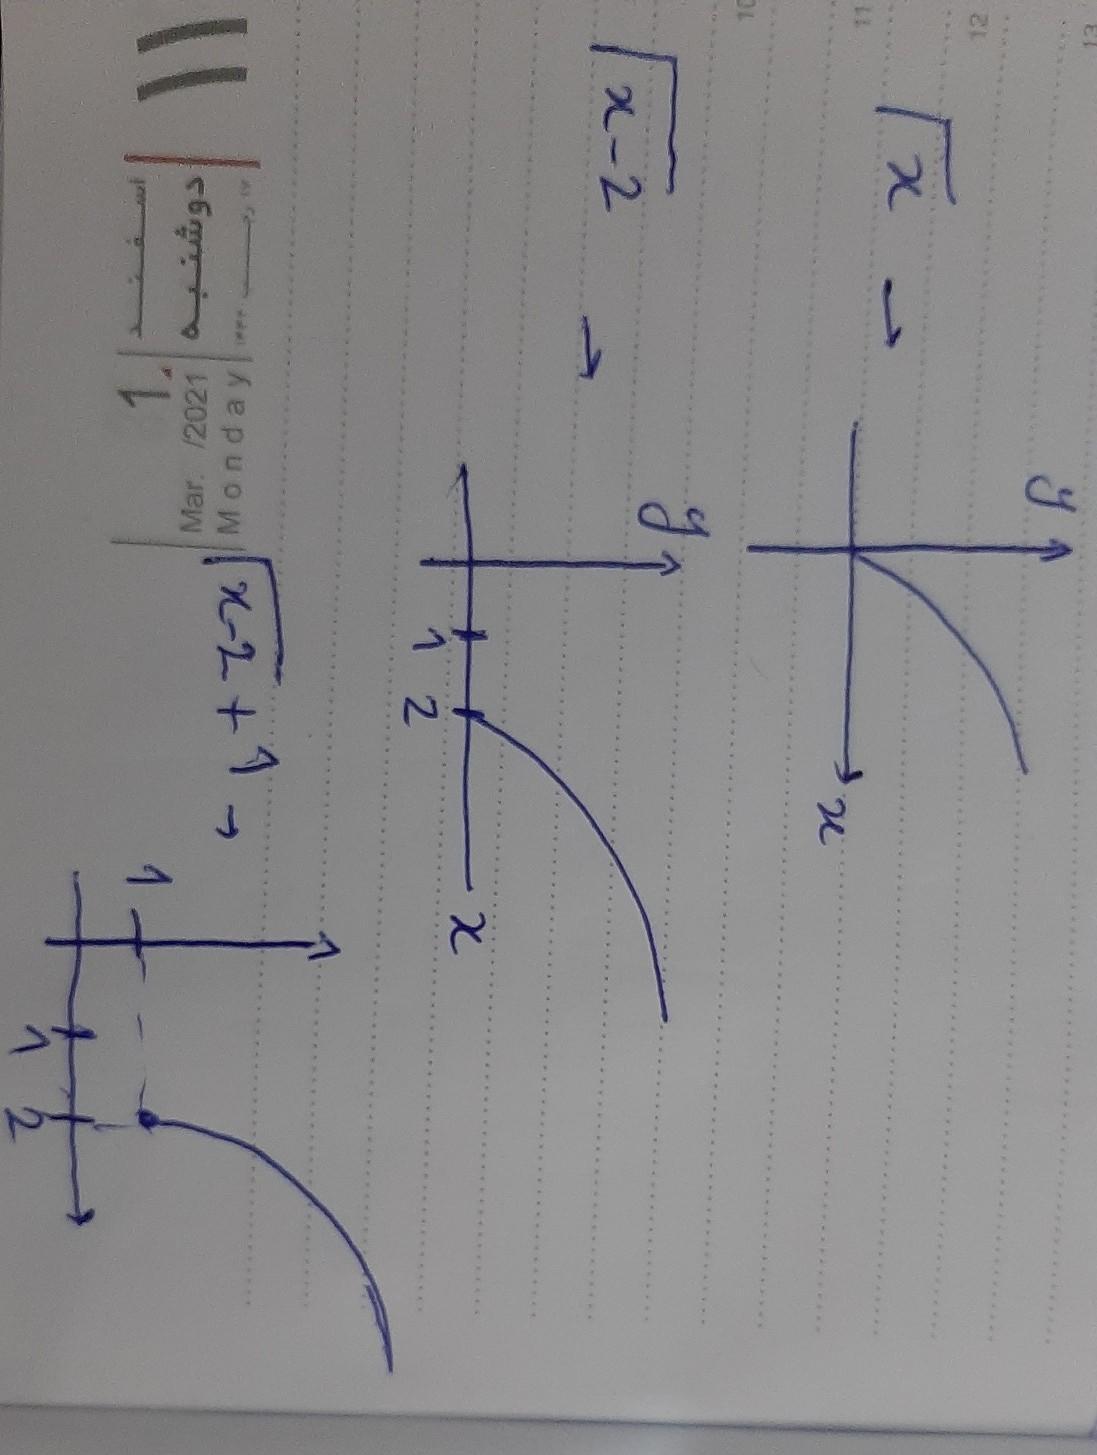 10
11
12
13
√x →
y
x
√x-2 →
y
1
2
x
√x-2 + 1 →
1
1
2
۱۱
اسفند
دوشنبه
1.
Mar. /2021
Monday